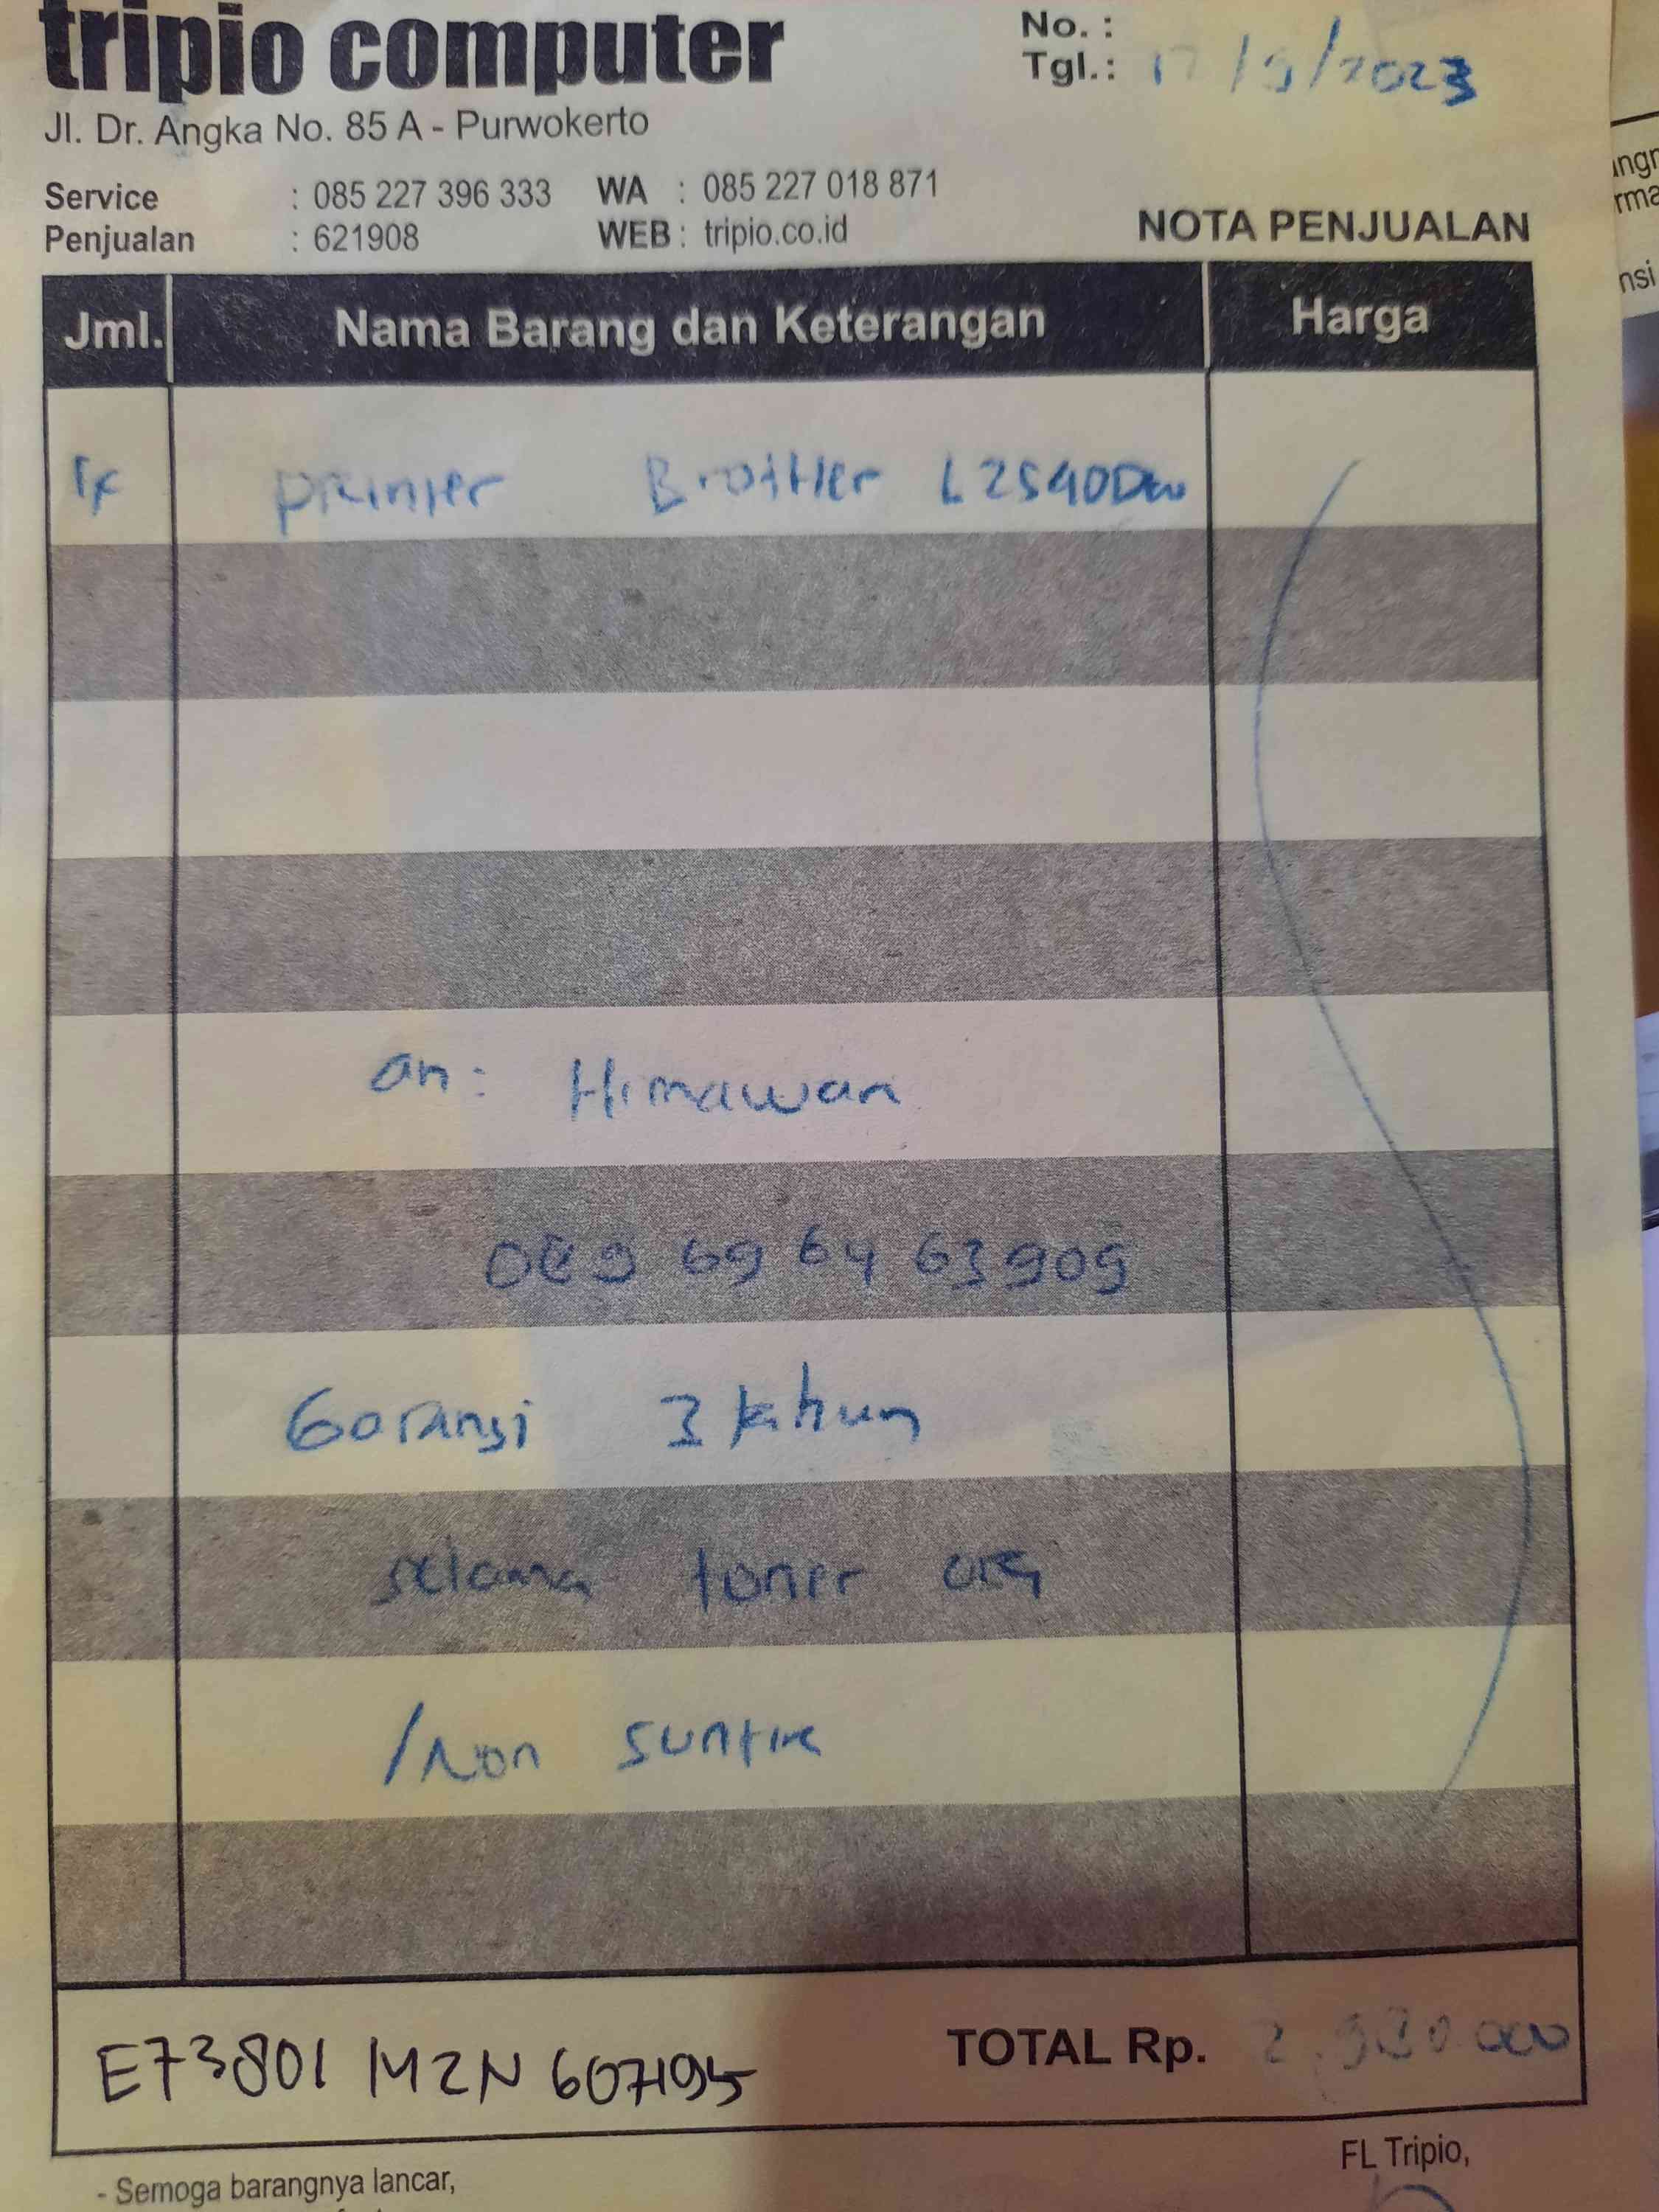 tripio computer
No. :
Jl. Dr. Angka No. 85 A - Purwokerto
Tgl.: 17/9/2023
Service : 085 227 396 333 WA : 085 227 018 871
Penjualan : 621908 WEB : tripio.co.id
NOTA PENJUALAN
Jml. Nama Barang dan Keterangan Harga
1x Printer Brother L2540Dw
an: Himawan
089 69 64 63909
Garansi 3 tahun
selama toner org
/Non suntik
E73801 M2N 607195
TOTAL Rp. 2.980.000
FL Tripio,
- Semoga barangnya lancar,